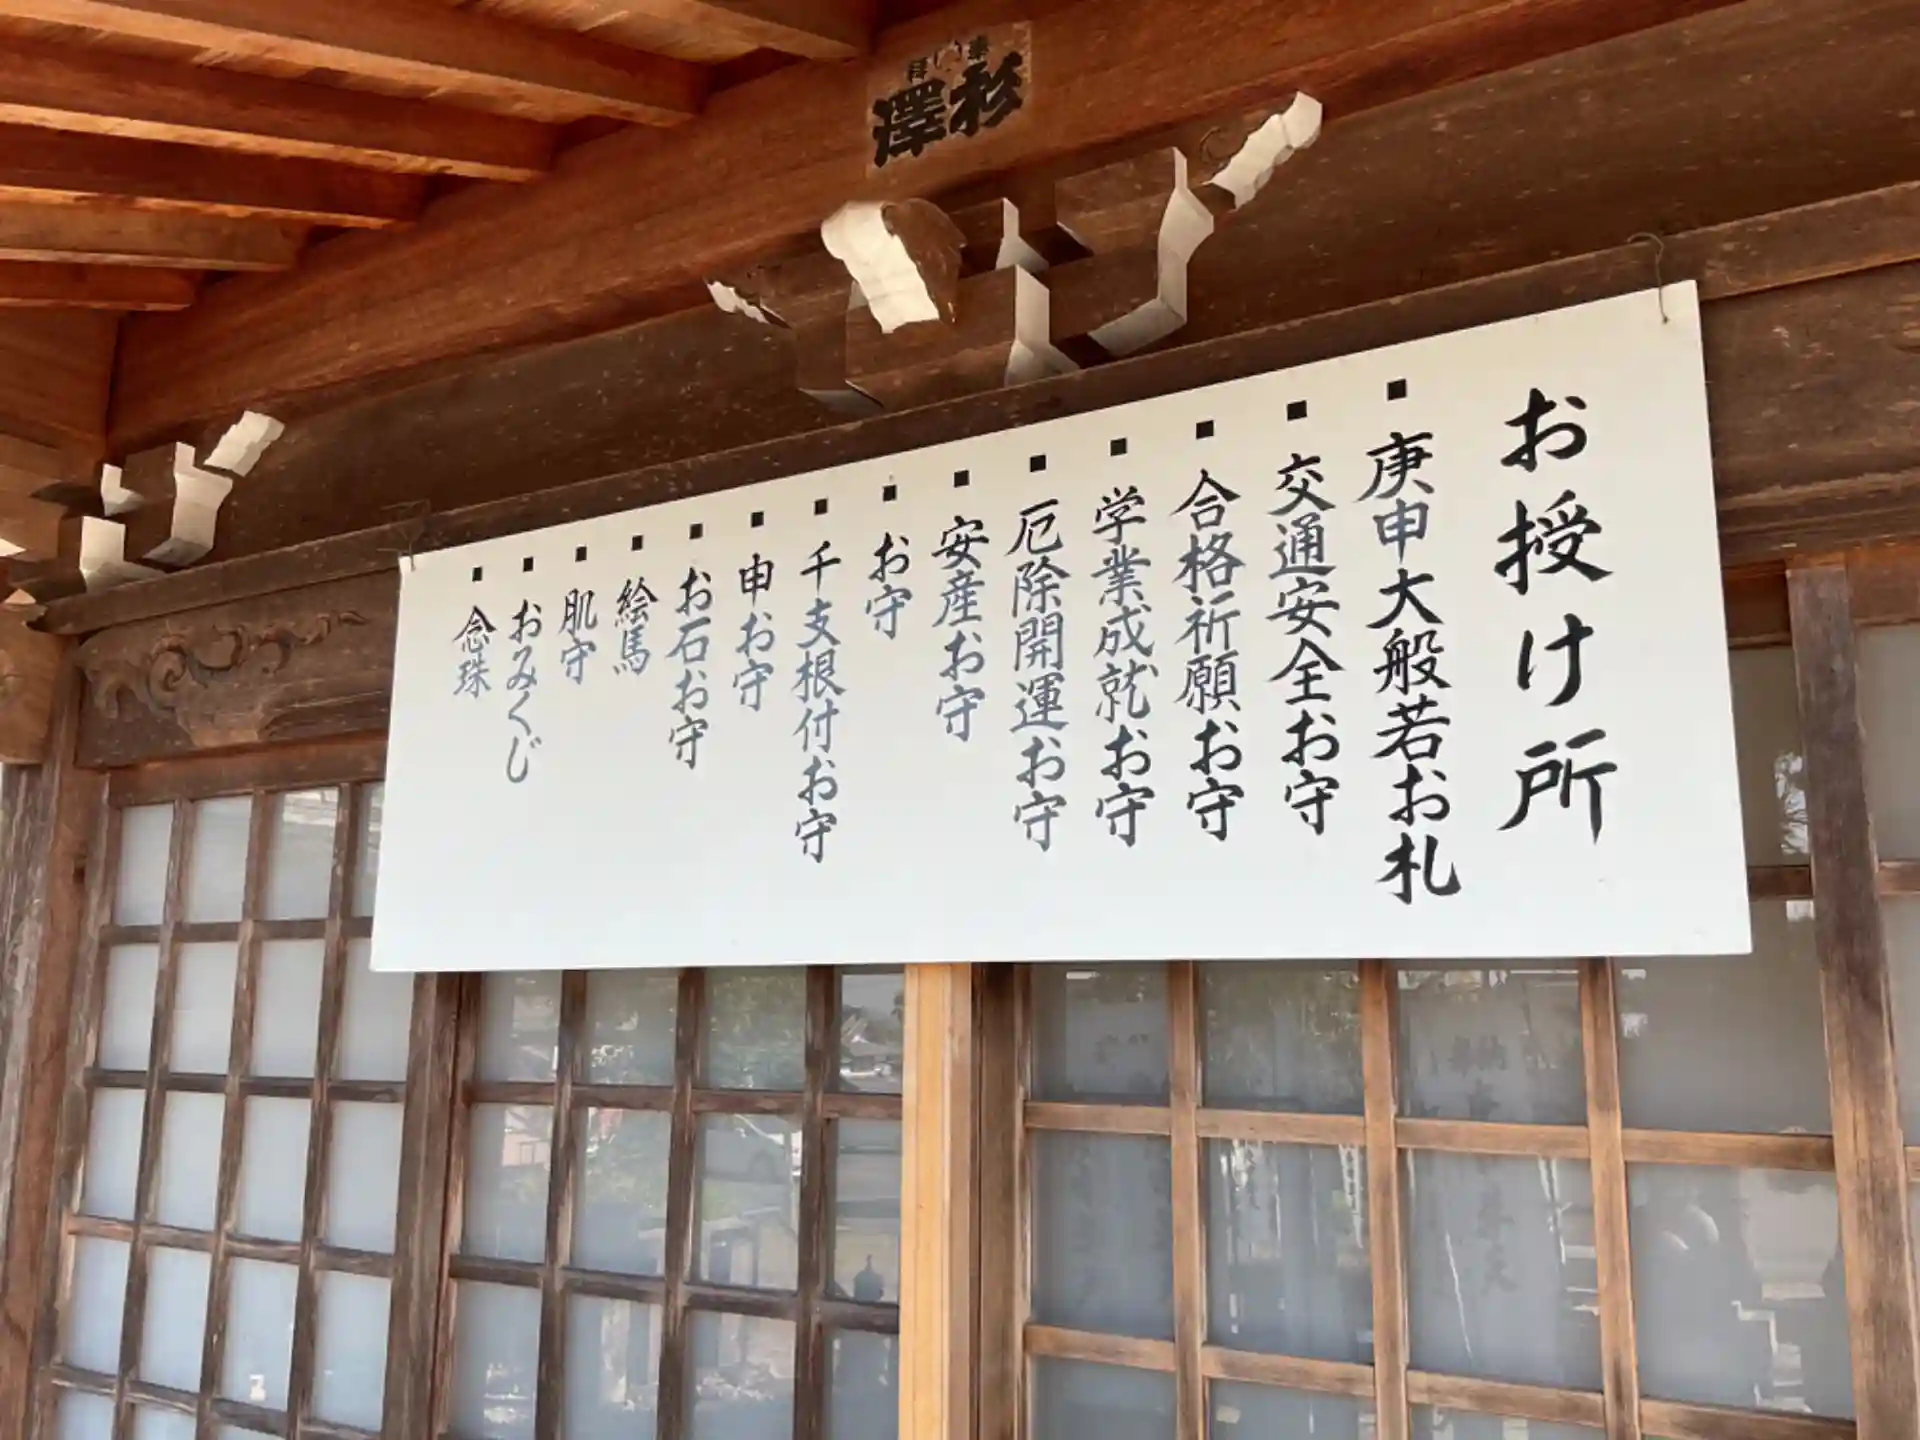 お授け所
▪庚申大般若お札
▪交通安全お守
▪合格祈願お守
▪学業成就お守
▪厄除開運お守
▪安産お守
▪お守
▪千支根付お守
▪申お守
▪お石お守
▪絵馬
▪肌守
▪おみくじ
▪念珠
杉澤